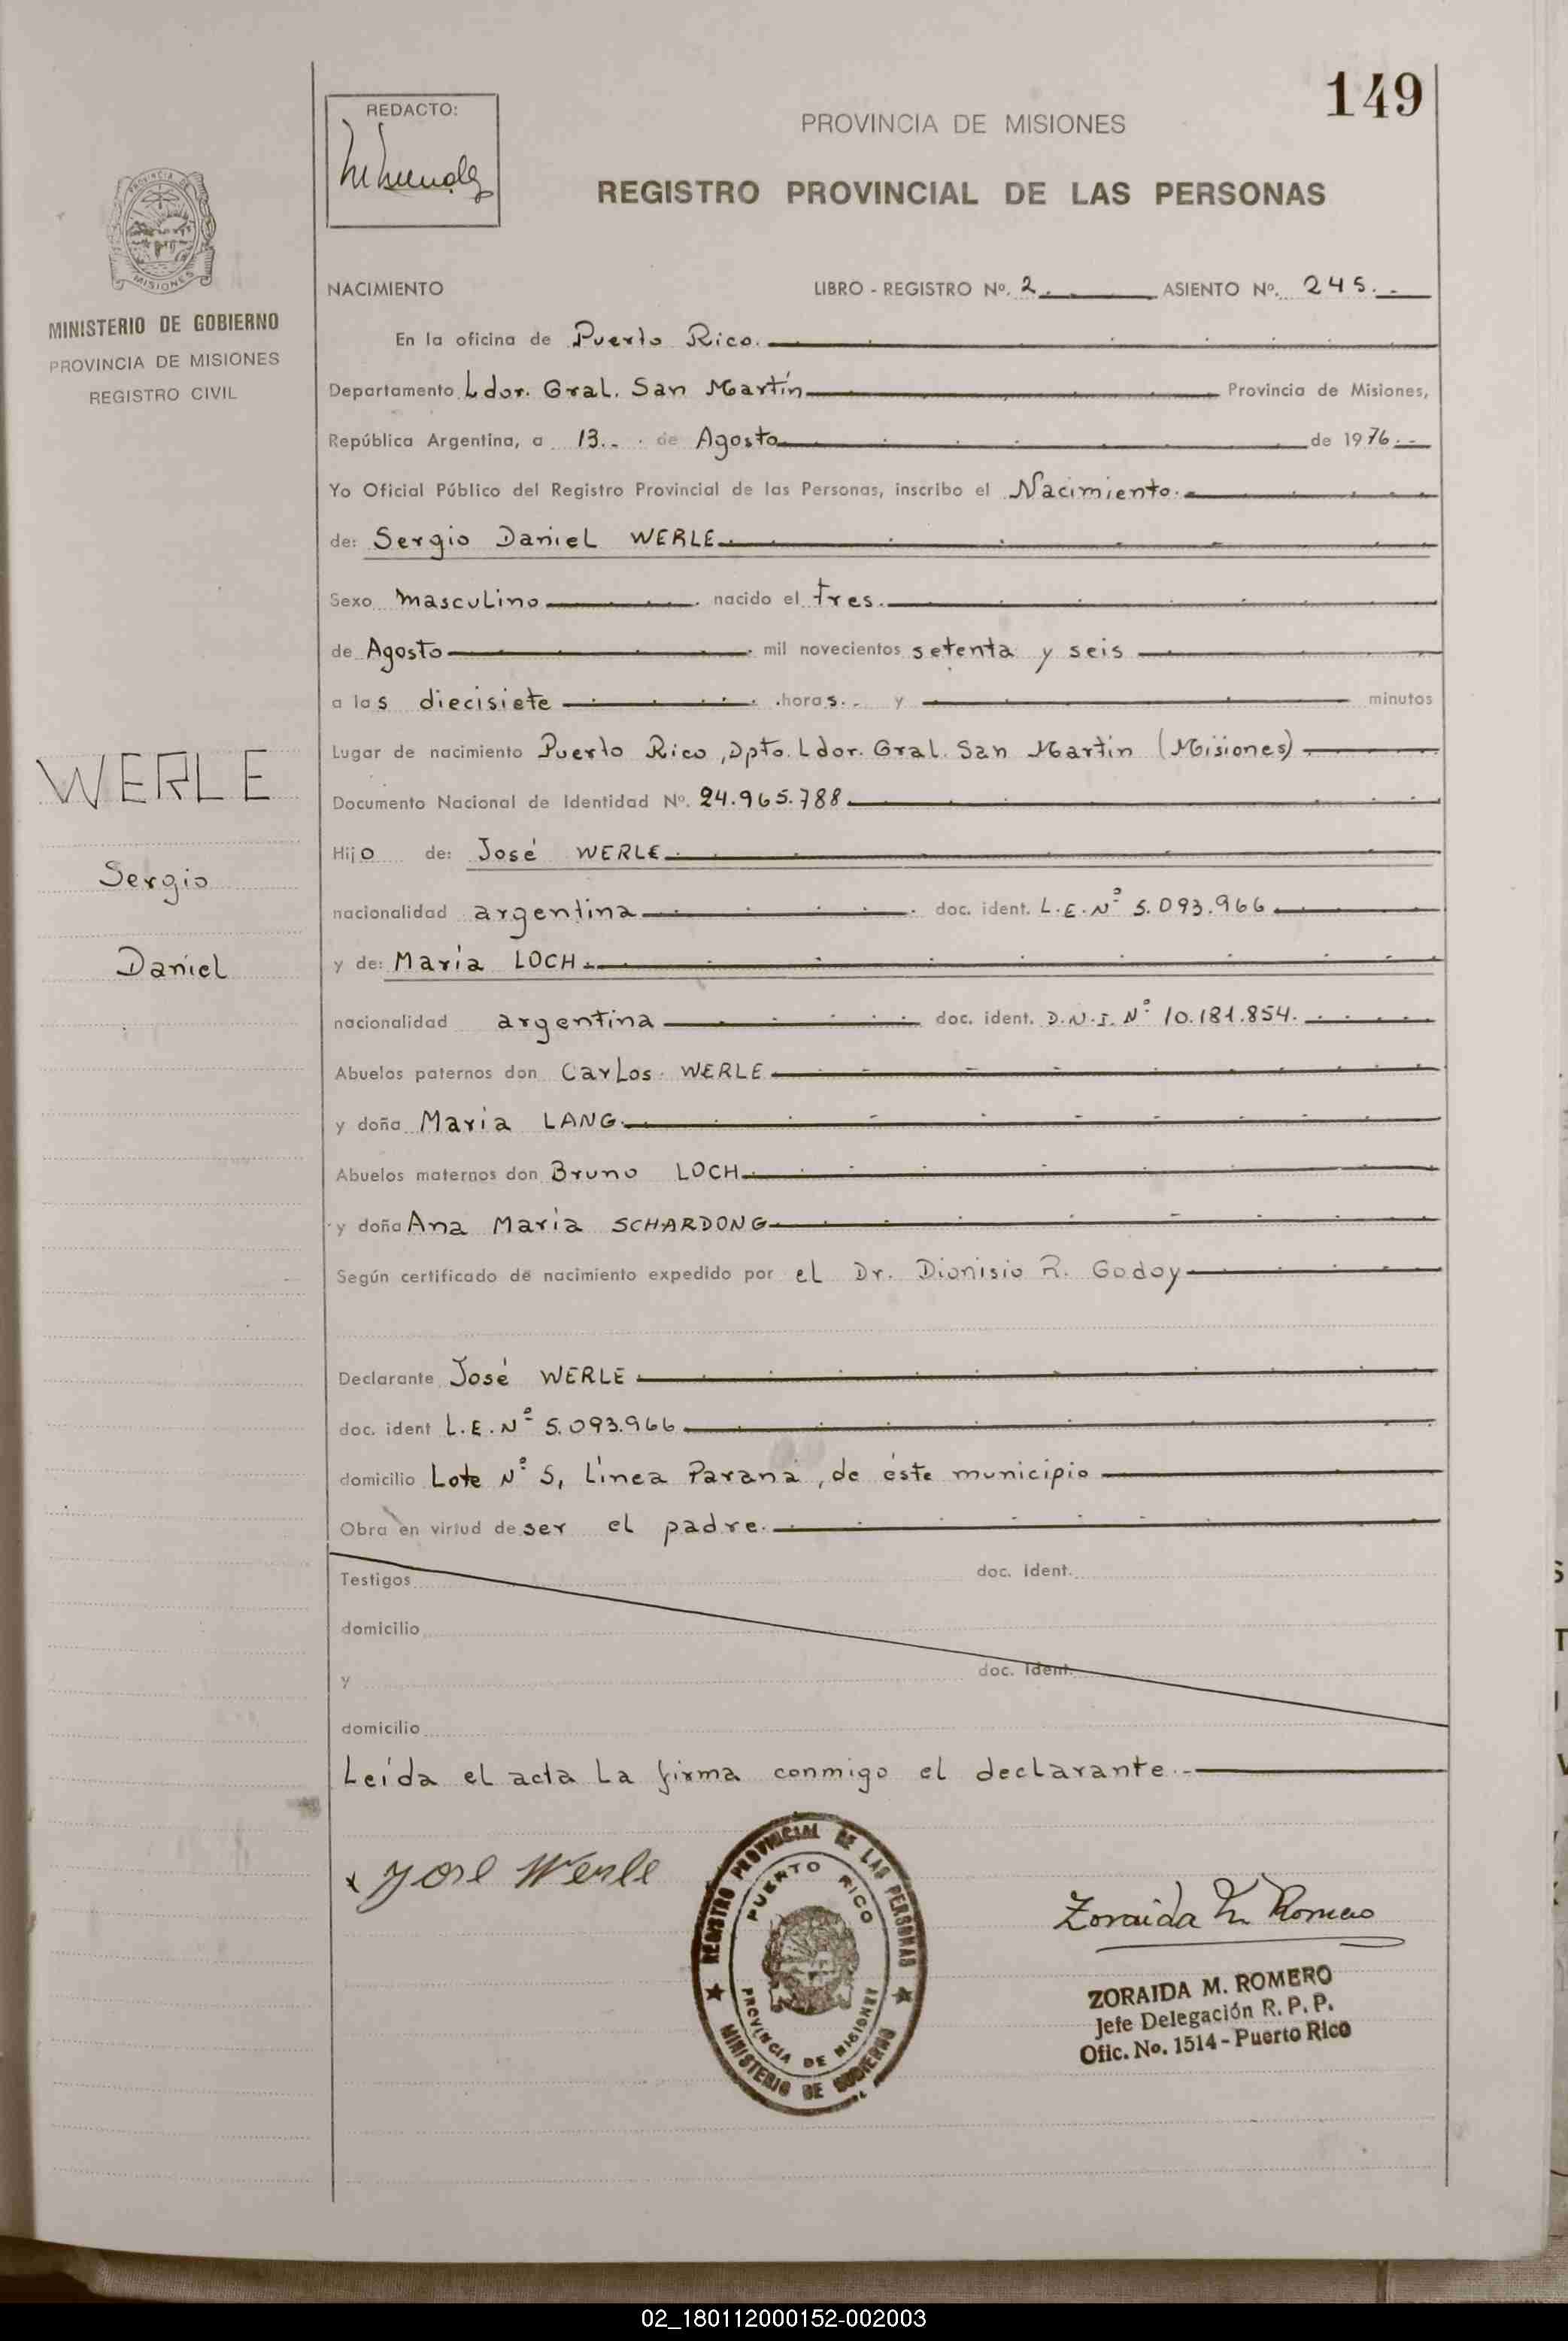 149
REDACTO:
PROVINCIA DE MISIONES
REGISTRO PROVINCIAL DE LAS PERSONAS
PROVINCIA DE
MISIONES
MINISTERIO DE GOBIERNO
PROVINCIA DE MISIONES
REGISTRO CIVIL
NACIMIENTO LIBRO - REGISTRO Nº. 2. ASIENTO Nº. 245.-
En la oficina de Puerto Rico.
Departamento Ldor. Gral. San Martín Provincia de Misiones,
República Argentina, a 13.- de Agosto de 1976.-
Yo Oficial Público del Registro Provincial de las Personas, inscribo el Nacimiento.
de: Sergio Daniel WERLE.
Sexo masculino nacido el tres.
de Agosto mil novecientos setenta y seis
a las diecisiete horas.- y minutos
Lugar de nacimiento Puerto Rico, Dpto. Ldor. Gral. San Martín (Misiones)
WERLE
Documento Nacional de Identidad Nº. 24.965.788
Hijo de: José WERLE
Sergio
nacionalidad argentina doc. ident. L.E.Nº 5.093.966
Daniel
y de: María LOCH.
nacionalidad argentina doc. ident. D.N.I. Nº 10.181.854.
Abuelos paternos don Carlos WERLE
y doña María LANG
Abuelos maternos don Bruno LOCH
y doña Ana María SCHARDONG
Según certificado de nacimiento expedido por el Dr. Dionisio R. Godoy
Declarante José WERLE
doc. ident L.E.Nº 5.093.966
domicilio Lote Nº 5, Línea Paraná, de éste municipio
Obra en virtud de ser el padre.
Testigos doc. ident.
domicilio
y doc. ident.
domicilio
Leída el acta la firma conmigo el declarante.-
x José Werle
REGISTRO PROVINCIAL DE LAS PERSONAS
PUERTO RICO
PROVINCIA DE MISIONES
MINISTERIO DE GOBIERNO
Zoraida M Romero
ZORAIDA M. ROMERO
Jefe Delegación R. P. P.
Ofic. No. 1514 - Puerto Rico
02_180112000152-002003